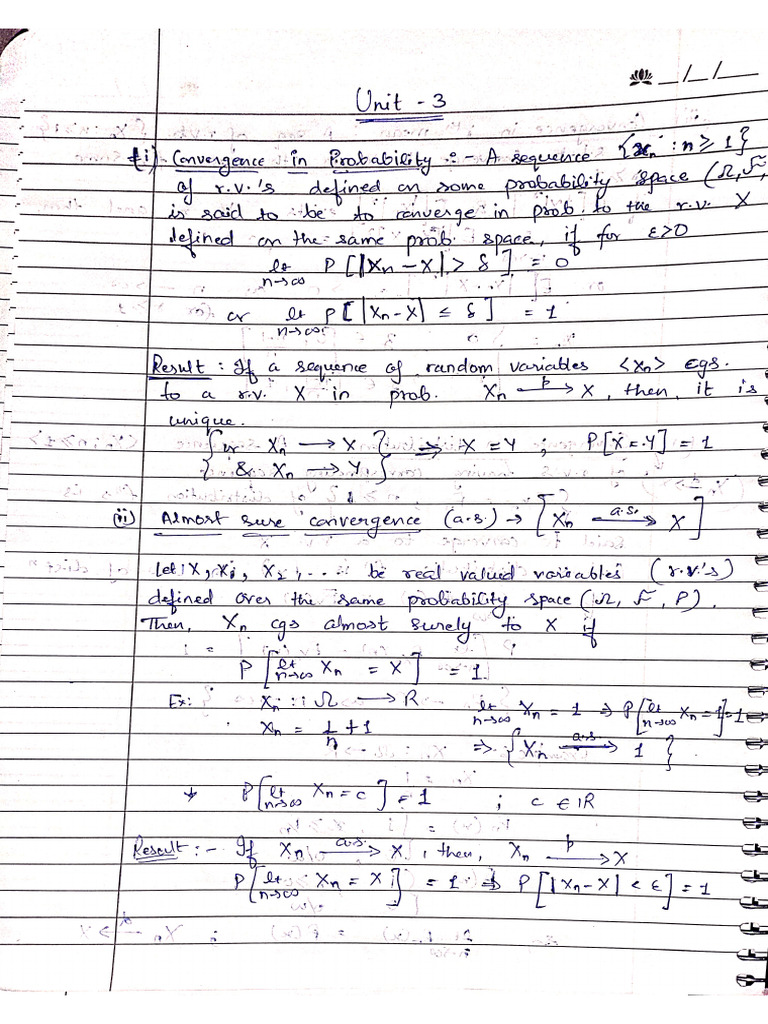 _/_/__
Unit - 3
i) Convergence in Probability :- A sequence {xn : n ≥ 1}
of r.v.'s defined on some probability space (Ω, F,
is said to be to converge in prob. to the r.v. X
defined on the same prob. space, if for ε>0
lt n→∞ P[|Xn - X| > δ] = 0
or lt n→∞ P[|Xn - X| ≤ δ] = 1
Result : If a sequence of random variables <xn> cgs.
to a r.v. X in prob. Xn —p→ X, then, it is
unique.
{ Xn → X } ⇒ X = Y ; P[X = Y] = 1
{ & Xn → Y }
(ii) Almost sure convergence (a.s.) → [Xn —a.s.→ X]
Let X, X1, X2, ... be real valued variables (r.v.'s)
defined over the same probability space (Ω, F, P).
Then, Xn cgs almost surely to X if
P[lt n→∞ Xn = X] = 1.
Ex: Xn : Ω → R lt n→∞ Xn = 1 ⇒ P[lt n→∞ Xn = 1] = 1
Xn = 1/n + 1 ⇒ {Xn —a.s.→ 1}
P[lt n→∞ Xn = c] = 1 ; c ∈ IR
Result :- If Xn —a.s.→ X, then, Xn —p→ X
P[lt n→∞ Xn = X] = 1 ⇒ P[|Xn - X| < ε] = 1